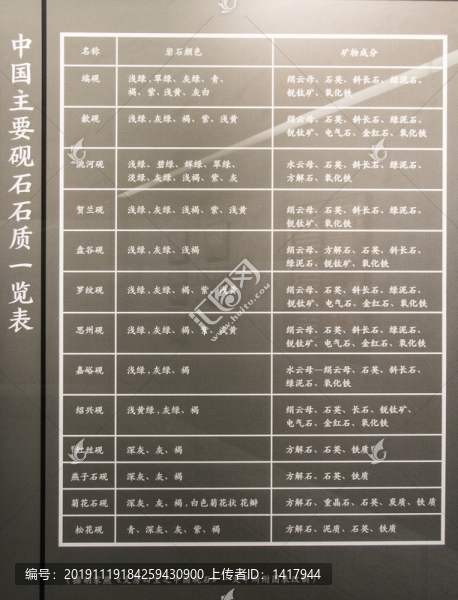 中国主要砚石石质一览表
名称 岩石颜色 矿物成分
端砚 浅绿,翠绿、灰绿、青、 绢云母、石英、斜长石、绿泥石、
褐、紫、浅黄、灰白 锐钛矿、氧化铁
歙砚 浅绿,灰绿、褐、紫、浅黄 绢云母、石英、斜长石、绿泥石、
锐钛矿、电气石、金红石、氧化铁
洮河砚 浅绿、碧绿、辉绿、翠绿、 水云母、石英、斜长石、绿泥石、
淡绿、灰绿、浅褐、紫、灰 方解石、氧化铁
贺兰砚 浅绿,灰绿、浅褐、紫、浅黄 绢云母、石英、斜长石、绿泥石、
锐钛矿、氧化铁
盘谷砚 浅绿,灰绿、浅褐 绢云母、方解石、石英、斜长石、
绿泥石、锐钛矿、氧化铁
罗纹砚 浅绿,灰绿、褐、紫、浅黄 绢云母、石英、斜长石、绿泥石、
锐钛矿、电气石、金红石、氧化铁
思州砚 浅绿,灰绿、褐、紫、浅黄 绢云母、石英、斜长石、绿泥石、
锐钛矿、电气石、金红石、氧化铁
嘉峪砚 浅绿,灰绿、褐 水云母—绢云母、石英、斜长石、
绿泥石、氧化铁
绍兴砚 浅黄绿,灰绿、褐 绢云母、石英、长石、锐钛矿、
电气石、金红石、氧化铁
红丝砚 深灰、灰、褐 方解石、石英、铁质
燕子石砚 深灰、灰、褐 方解石、石英、铁质
菊花石砚 深灰、灰、褐,白色菊花状花瓣 方解石、重晶石、石英、炭质、铁质
松花砚 青、深灰、灰、紫、褐 方解石、泥质、石英、铁质
汇图网
www.huitu.com
编号：20191119184259430900 上传者ID：1417944